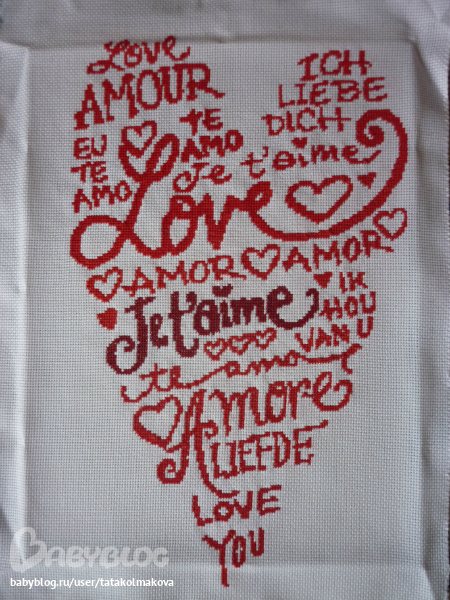 Love
AMOUR
ICH
LIEBE
DICH
EU
TE
AMO
TE
AMO
Je t'aime
Love
AMOR AMOR
Je t'aime
IK
HOU
VAN U
te amo
Amore
LIEFDE
LOVE
YOU
BABYBLOG
babyblog.ru/user/tatakolmakova